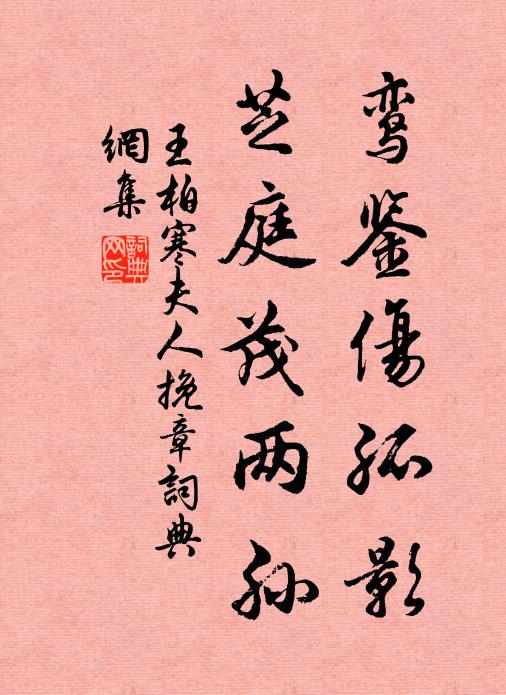 鸾鉴傷孤影
芝庭茂两孙
王柏寒夫人挽章詞典
網集
詞典
网印